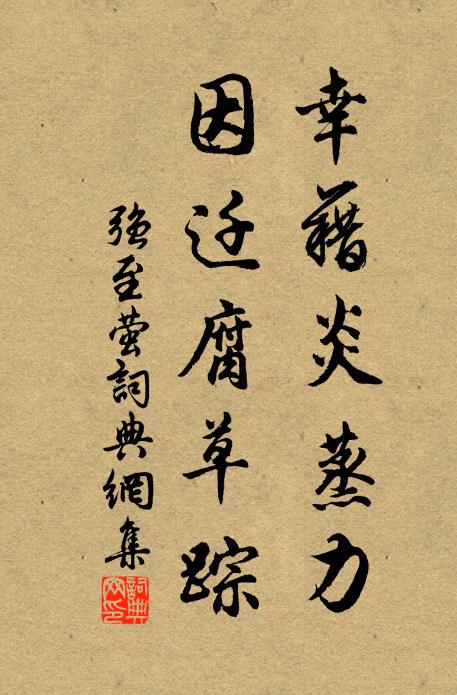 幸藉炎蒸力
因迁腐草踪
强至萤詞典網集
詞典网印